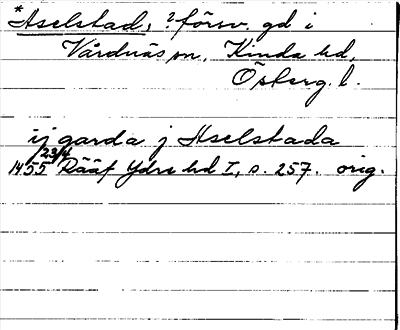 *Aselstad, ? försv. gd i
Vårdnäs sn, Kinda hd,
Österg. l.
ij garda j Aselstada
1455 23/4 Rääf Ydre hd I, s. 257. orig.